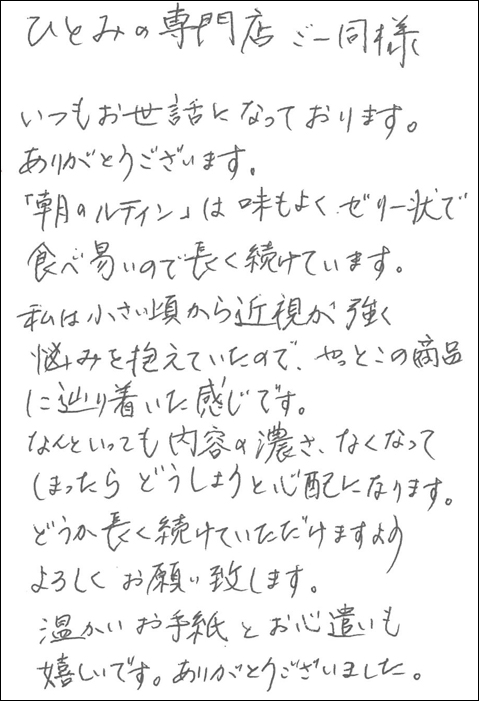 ひとみの専門店 ご一同様
いつもお世話になっております。
ありがとうございます。
「朝のルテイン」は味もよく ゼリー状で
食べ易いので長く続けています。
私は小さい頃から近視が強く
悩みを抱えていたので、やっとこの商品
に辿り着いた感じです。
なんといっても内容の濃さ、なくなって
しまったら どうしようと心配になります。
どうか長く続けていただけますよう
よろしく お願い致します。
温かい お手紙と お心遣いも
嬉しいです。ありがとうございました。